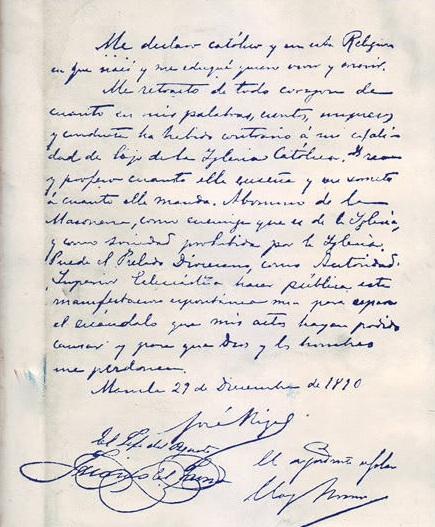 Me declaro católico y en esta Religion
en que nací y me eduqué quiero vivir y morir.
Me retracto de todo corazon de
cuanto en mis palabras, escritos, impresos
y conducta ha habido contrario á mi cali
dad de hijo de la Iglesia Católica. Creo
y profeso cuanto ella enseña y me someto
á cuanto ella manda. Abomino de la
Masoneria, como enemiga que es de la Iglesia,
y como sociedad prohibida por la Iglesia.
Puede el Prelado Diocesano, como Autoridad
Superior Eclesiástica hacer pública esta
manifestacion espontanea mia para reparar
el escándalo que mis actos hayan podido
causar y para que Dios y los hombres
me perdonen.
Manila 29 de Diciembre de 1890
José Rizal
El Jefe del Piquete
El ayudante de Plaza
Juan del Fresno
Eloy Moure